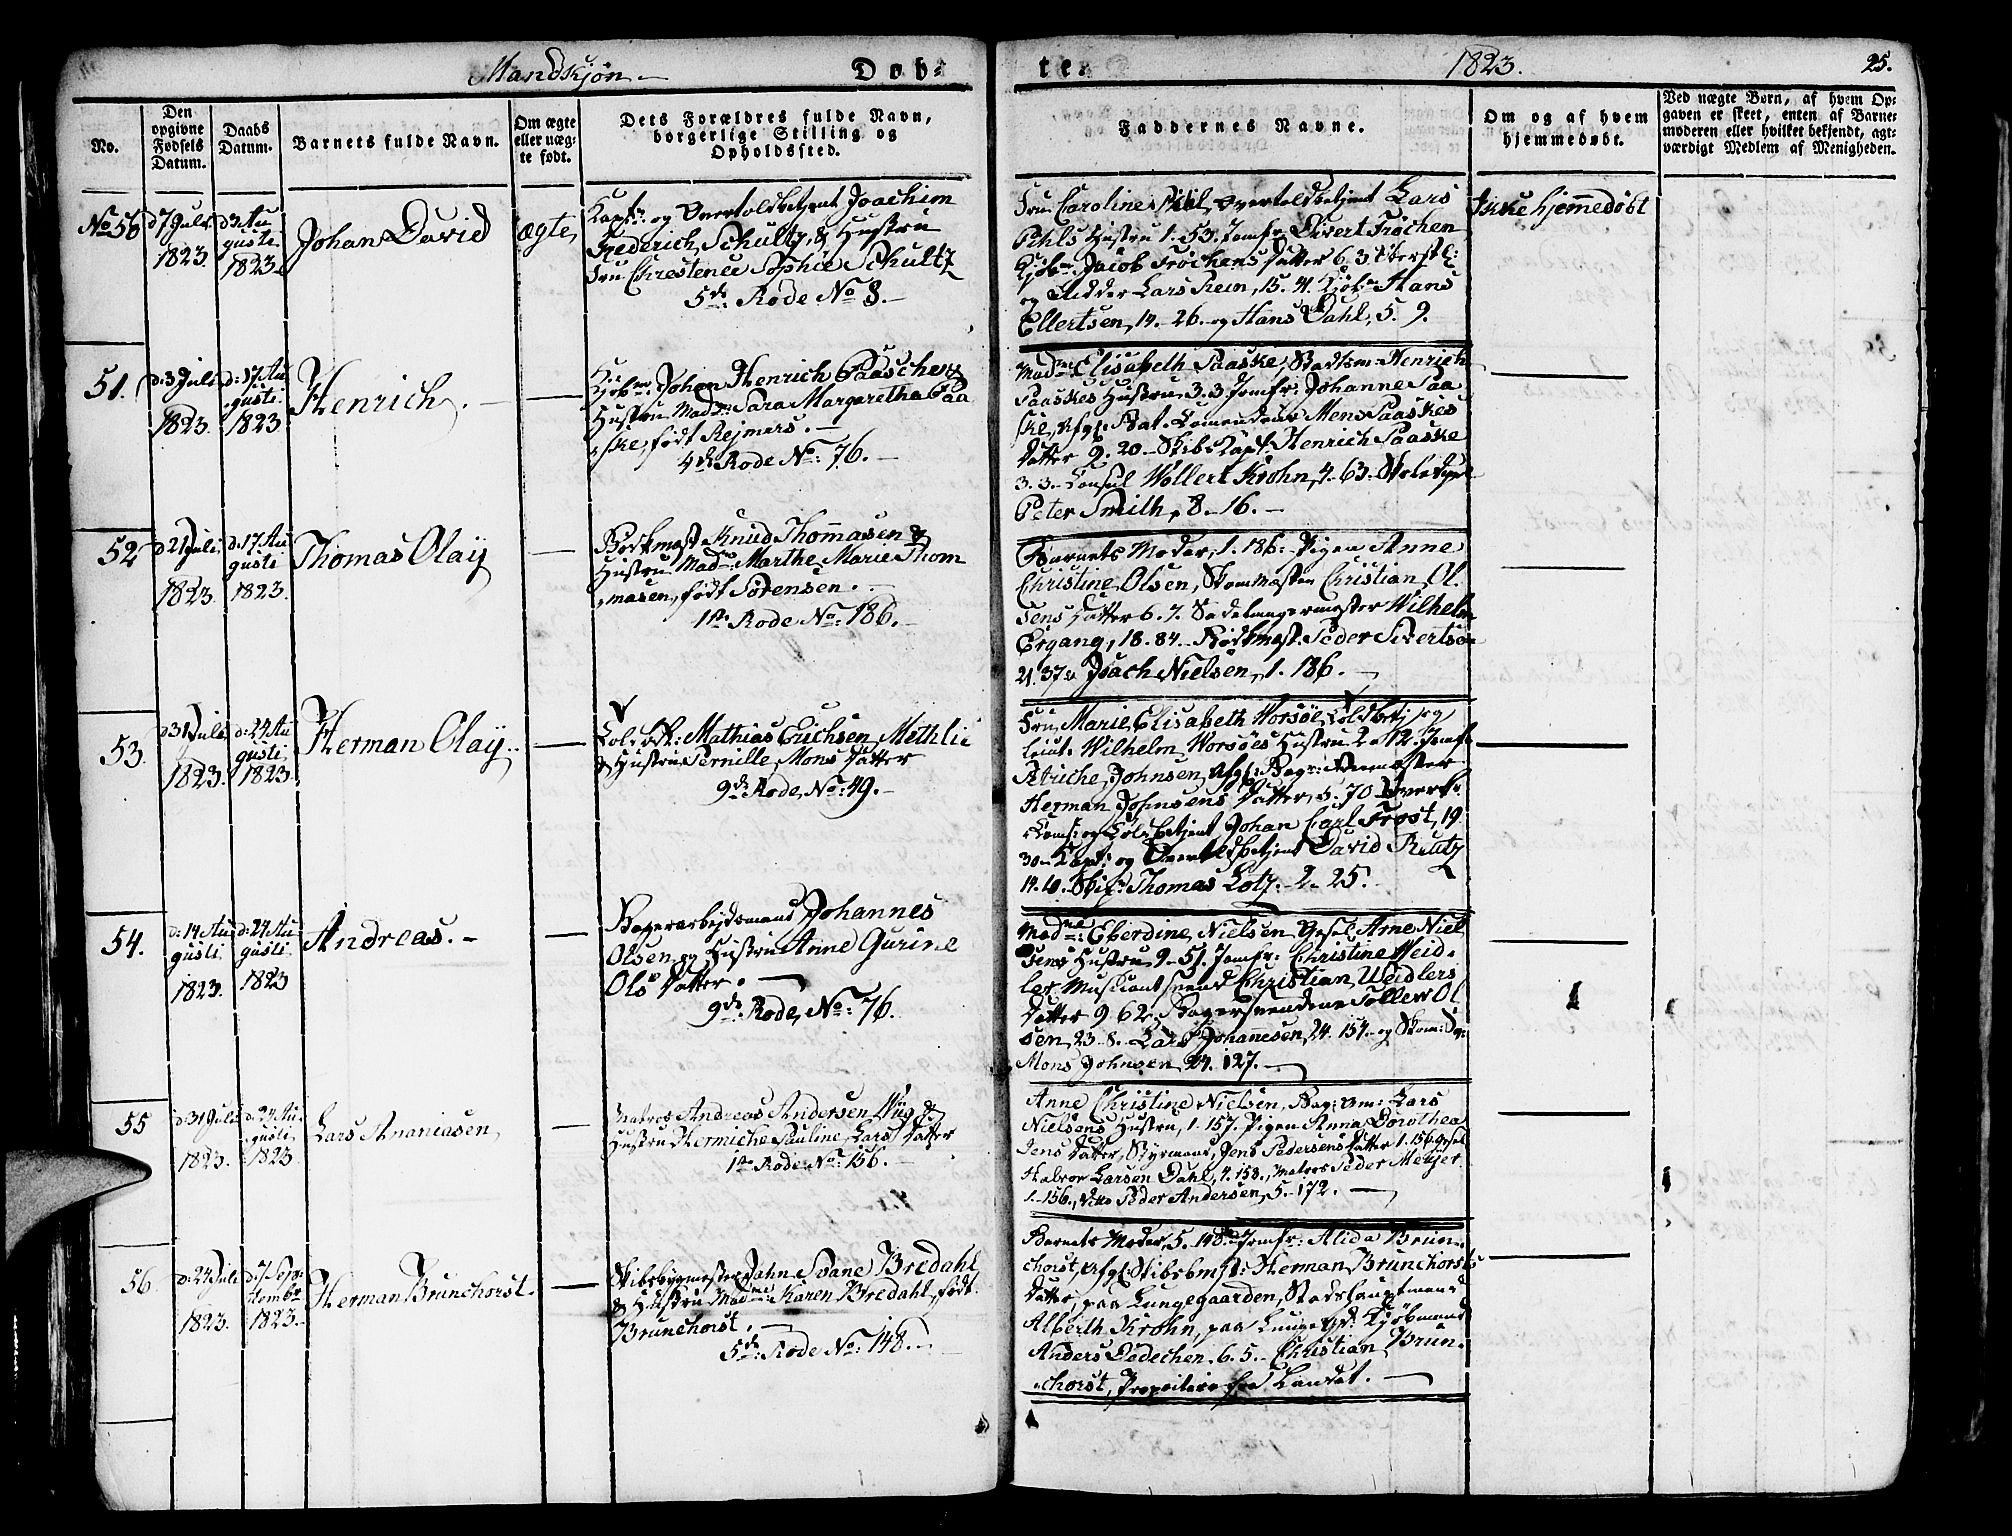 Mandkjøn
Døb-
te.
1823.
25.
No.
Den opgivne Fødsels Datum.
Daabs Datum.
Barnets fulde Navn.
Om ægte eller uægte født.
Dets Forældres fulde Navn, borgerlige Stilling og Opholdssted.
Faddernes Navne.
Om og af hvem hjemmedøbt.
Ved uægte Børn, af hvem Opgaven er skeet, enten af Barnemoderen eller hvilket bekjendt, agtværdigt Medlem af Menigheden.
No 50
d 7 Juli 1823.
d 3 Augusti 1823.
Johan David
ægte
Kapt: og Overtoldbetjent Joachim
Frederich Schultz, & Hustru
Fru Chrestence Sophie Schultz
5de Rode No 8.
Fru Caroline Pihl, Overtoldbetjent Lars
Pihls Hustru 1. 53. Jomfr. Divert Frøchen
Kjøbm: Jacob Frøchens Datter 6. 3
og Ridder Lars Rein, 15. 4. Kjøbm Hans
Ellertsen, 14. 26. og Hans Dahl, 5. 9.
Ikke hjemmedöbt
51.
d: 3 Juli 1823.
d: 17 Augusti 1823
Henrich.
Kjøbm: Johan Henrich Paaske &
Hustru Mad: Sara Margaretha Paa
ske, født Rejmers.
4de Rode No: 76.
Madme Elisabeth Paaske, Henrich
Paaskes Hustru 3. 3. Jomfr: Johanne Paa
ske, Afg: Mens Paaskes
Datter 9. 20 Skibs Capt: Henrich Paaske
3. 3. Consul Wollert Krohn, 4. 63.
Peter Smith, 8. 16.
52
d 21 Juli 1823.
d: 17 Augusti 1823.
Thomas Olaÿ
Bødkmest. Knud Thommasen &
Hustru Madme Marthe Marie Thom
masen, født Sørensen.
1ste Rode No: 186.
Barnets Moder, 1. 186. Pigen Anne
Christine Olsen, Skommester Christian Ol
sens Datter 6. 7. Sadelmagermester Wilhelm
Ergang, 18. 84. Bødkmest. Peder Sivertsen
21. 37. Joach Nielsen, 1. 186.
53.
d 31 Juli 1823.
d: 24 Augusti 1823.
Herman Olaÿ.
Mathias Erichsen Methlie
& Hustru Pernille Mons Datter
9de Rode, No: 49.
Fru Marie Elisabeth Worsøe, Toldbetj og
Leiut. Wilhelm Worsøes Hustru 2. 12. Jomfr
Johnsen, Afg:
Herman Johnsens Datter, 5. 70
og Toldbetjent Johan Carl Frost, 19.
30. Kapt: og Overtoldbetjent David Reutz
14. 10. Skip: Thomas Lotz. 2. 25.
54.
d: 14 Augusti 1823.
d: 24 Augusti 1823
Andreas.
Johannes
Olsen og Hustru Anne Gurine
Ols Datter.
9de Rode, No: 76.
Madme: Eberdine Nielsen, Arne Niel
sens Hustru 9. 51. Jomfr: Christine Weid
ler, Musicant Christian Weidlers
Datter 9 62. Tollew Ol
sen, 23. 8. Lars Johannesen, 24. 154. og
Mons Johnsen 24. 127.
55
d: 31 Juli 1823.
d: 24 Augusti 1823
Lars Ananiasen
Matros Andreas Andersen Wiig &
Hustru Hermiche Pauline Lars Datter
1ste Rode No: 156.
Anne Christine Nielsen, Lars
Nielsens Hustru, 1. 157. Pigen Anna Dorothea
Jens Datter, Styrmand, Jens Pedersens Datter 1. 156.
Halvor Larsen Dahl, 4. 158., Matros Peder Meijer
1. 156., Peder Andersen, 5. 172.
56.
d: 24 Juli 1823.
d: 7 September 1823.
Herman Brunchorst.
Skibsbygmester Jahn Svane Bredahl
& Hustru Madme: Karen Bredahl, født
Brunchorst.
5de: Rode No: 148.
Barnets Moder, 5. 148. Jomfr: Alida Brun
chorst, Afg: Skibsbmst: Herman Brunchorsts
Datter, paa Lungegaarden, Stadshauptmand
Alberth Krohn, paa Kjøbmand
Anders Dedechen. 6. 5. Christian Brun
chorst,